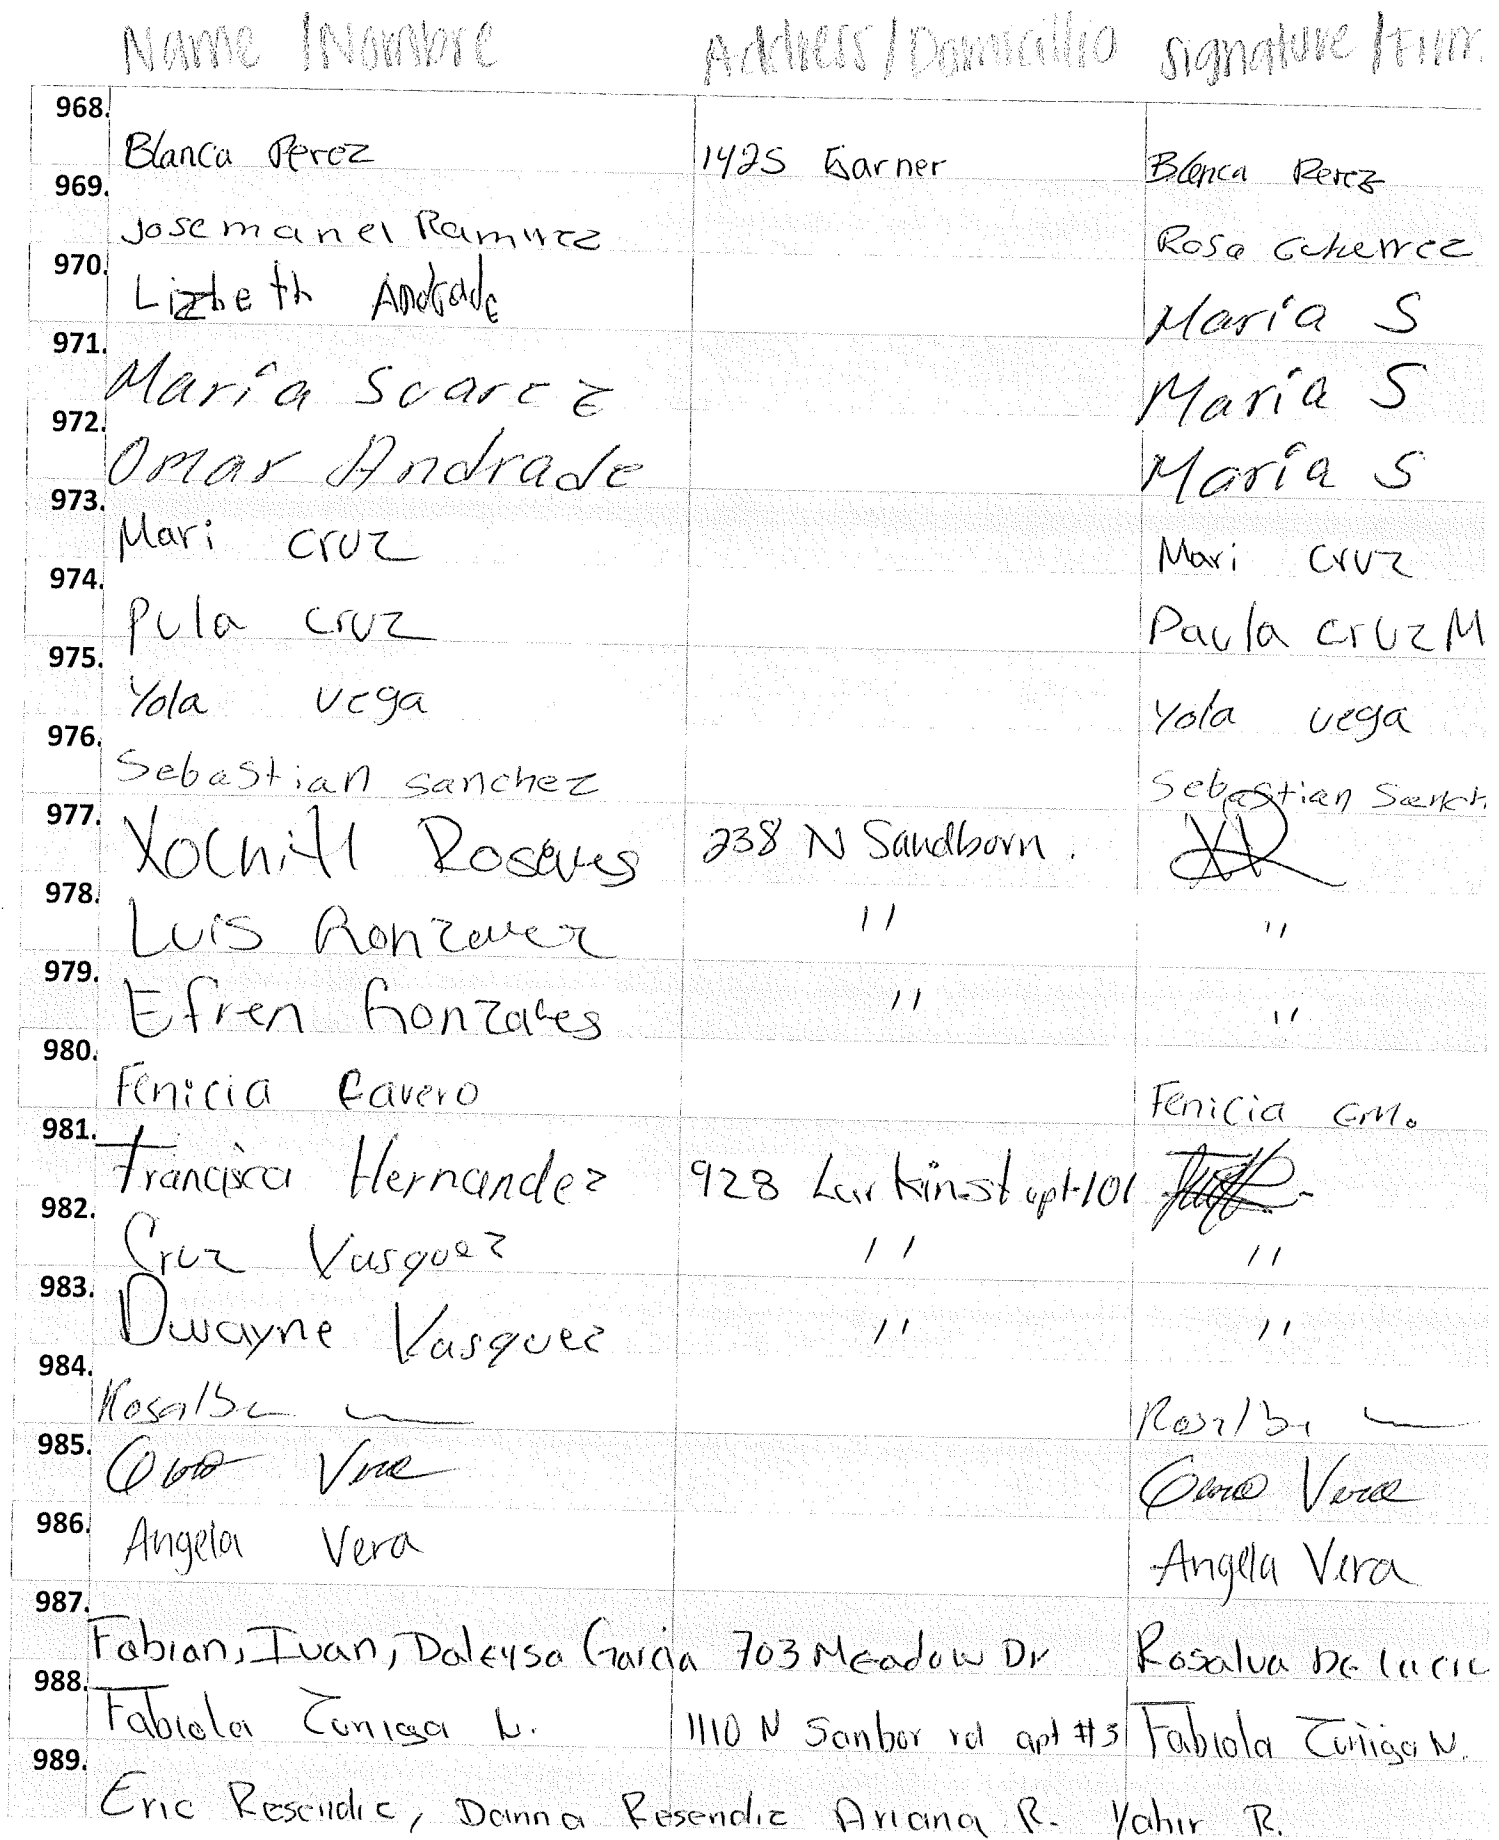 Name /Nombre Address/Domicillio signature/Firm
968.
Blanca Perez 1425 Garner Blanca Perez
969.
Jose manel Ramirez Rosa Guherrez
970.
Lizbeth Andrade María S
971.
María Suarez María S
972.
Omar Andrade María S
973.
Mari cruz Mari cruz
974.
Pula cruz Paula cruz M
975.
Yola vega Yola vega
976.
Sebastian sanchez Sebastian
977.
Xochitl Rosales 238 N Sandborn.
978.
Luis Gonzalez " "
979.
Efren Gonzales " "
980.
Fenicia Cavero Fenicia G.M.
981.
Francisca Hernandez 928 Larkin st apt-101
982.
Cruz Vasquez " "
983.
Dwayne Vasquez " "
984.
Rosalba Rosalba
985.
Vera Vera
986.
Angela Vera Angela Vera
987.
Fabian, Ivan, Daleysa Garcia 703 Meadow Dr Rosalva De la
988.
Fabiola Zuniga N. 1110 N Sanbor rd apt #3 Fabiola Zuñiga N.
989.
Eric Resendiz, Danna Resendiz Ariana R. Yahir R.